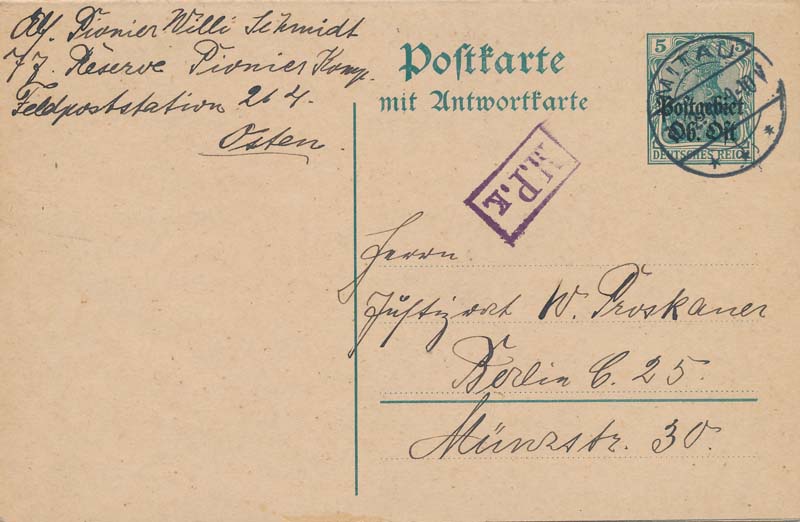 Abs. Pionier Willi Schmidt
77. Reserve Pionier Komp.
Feldpoststation 264.
Osten.
Postkarte
mit Antwortkarte
5 5
MITAU
Postgebiet
Ob. Ost
DEUTSCHES REICH
M.P.K.
Herrn
Justizrat W. Proskauer
Berlin C. 25.
Münzstr. 30.